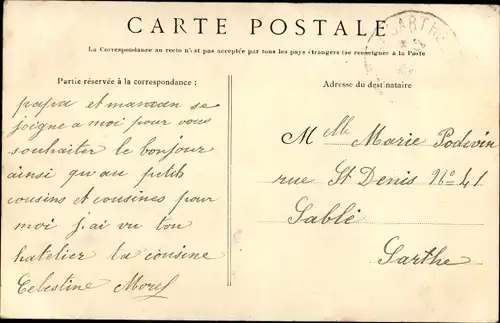 CARTE POSTALE
La Correspondance au recto n'est pas acceptée par tous les pays étrangers (se renseigner à la Poste
Partie réservée à la correspondance :
papa et maman se
joigne a moi pour vous
souhaiter le bonjour
ainsi qu'au petits
cousins et cousines pour
moi j'ai vu ton
hatelier ta cousine
Celestine Morel
SARTHE
Adresse du destinataire
Mlle Marie Podevin
rue St Denis No 41
Sablé
Sarthe